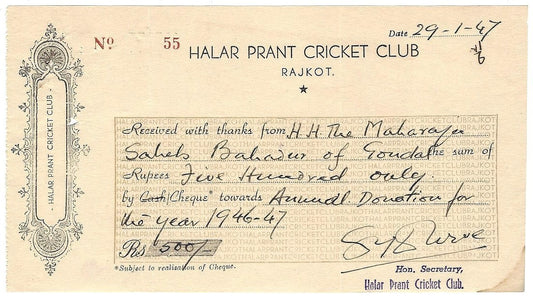 Nº 55
Date 29-1-47
HALAR PRANT CRICKET CLUB
RAJKOT.
HALAR PRANT CRICKET CLUB
Received with thanks from H.H. The Maharaja
Saheb Bahadur of Gondal the sum of
Rupees Five Hundred only.
by Cash/Cheque* towards Annual Donation for
the year 1946-47
Rs 500/-
*Subject to realisation of Cheque.
Hon. Secretary,
Halar Prant Cricket Club.